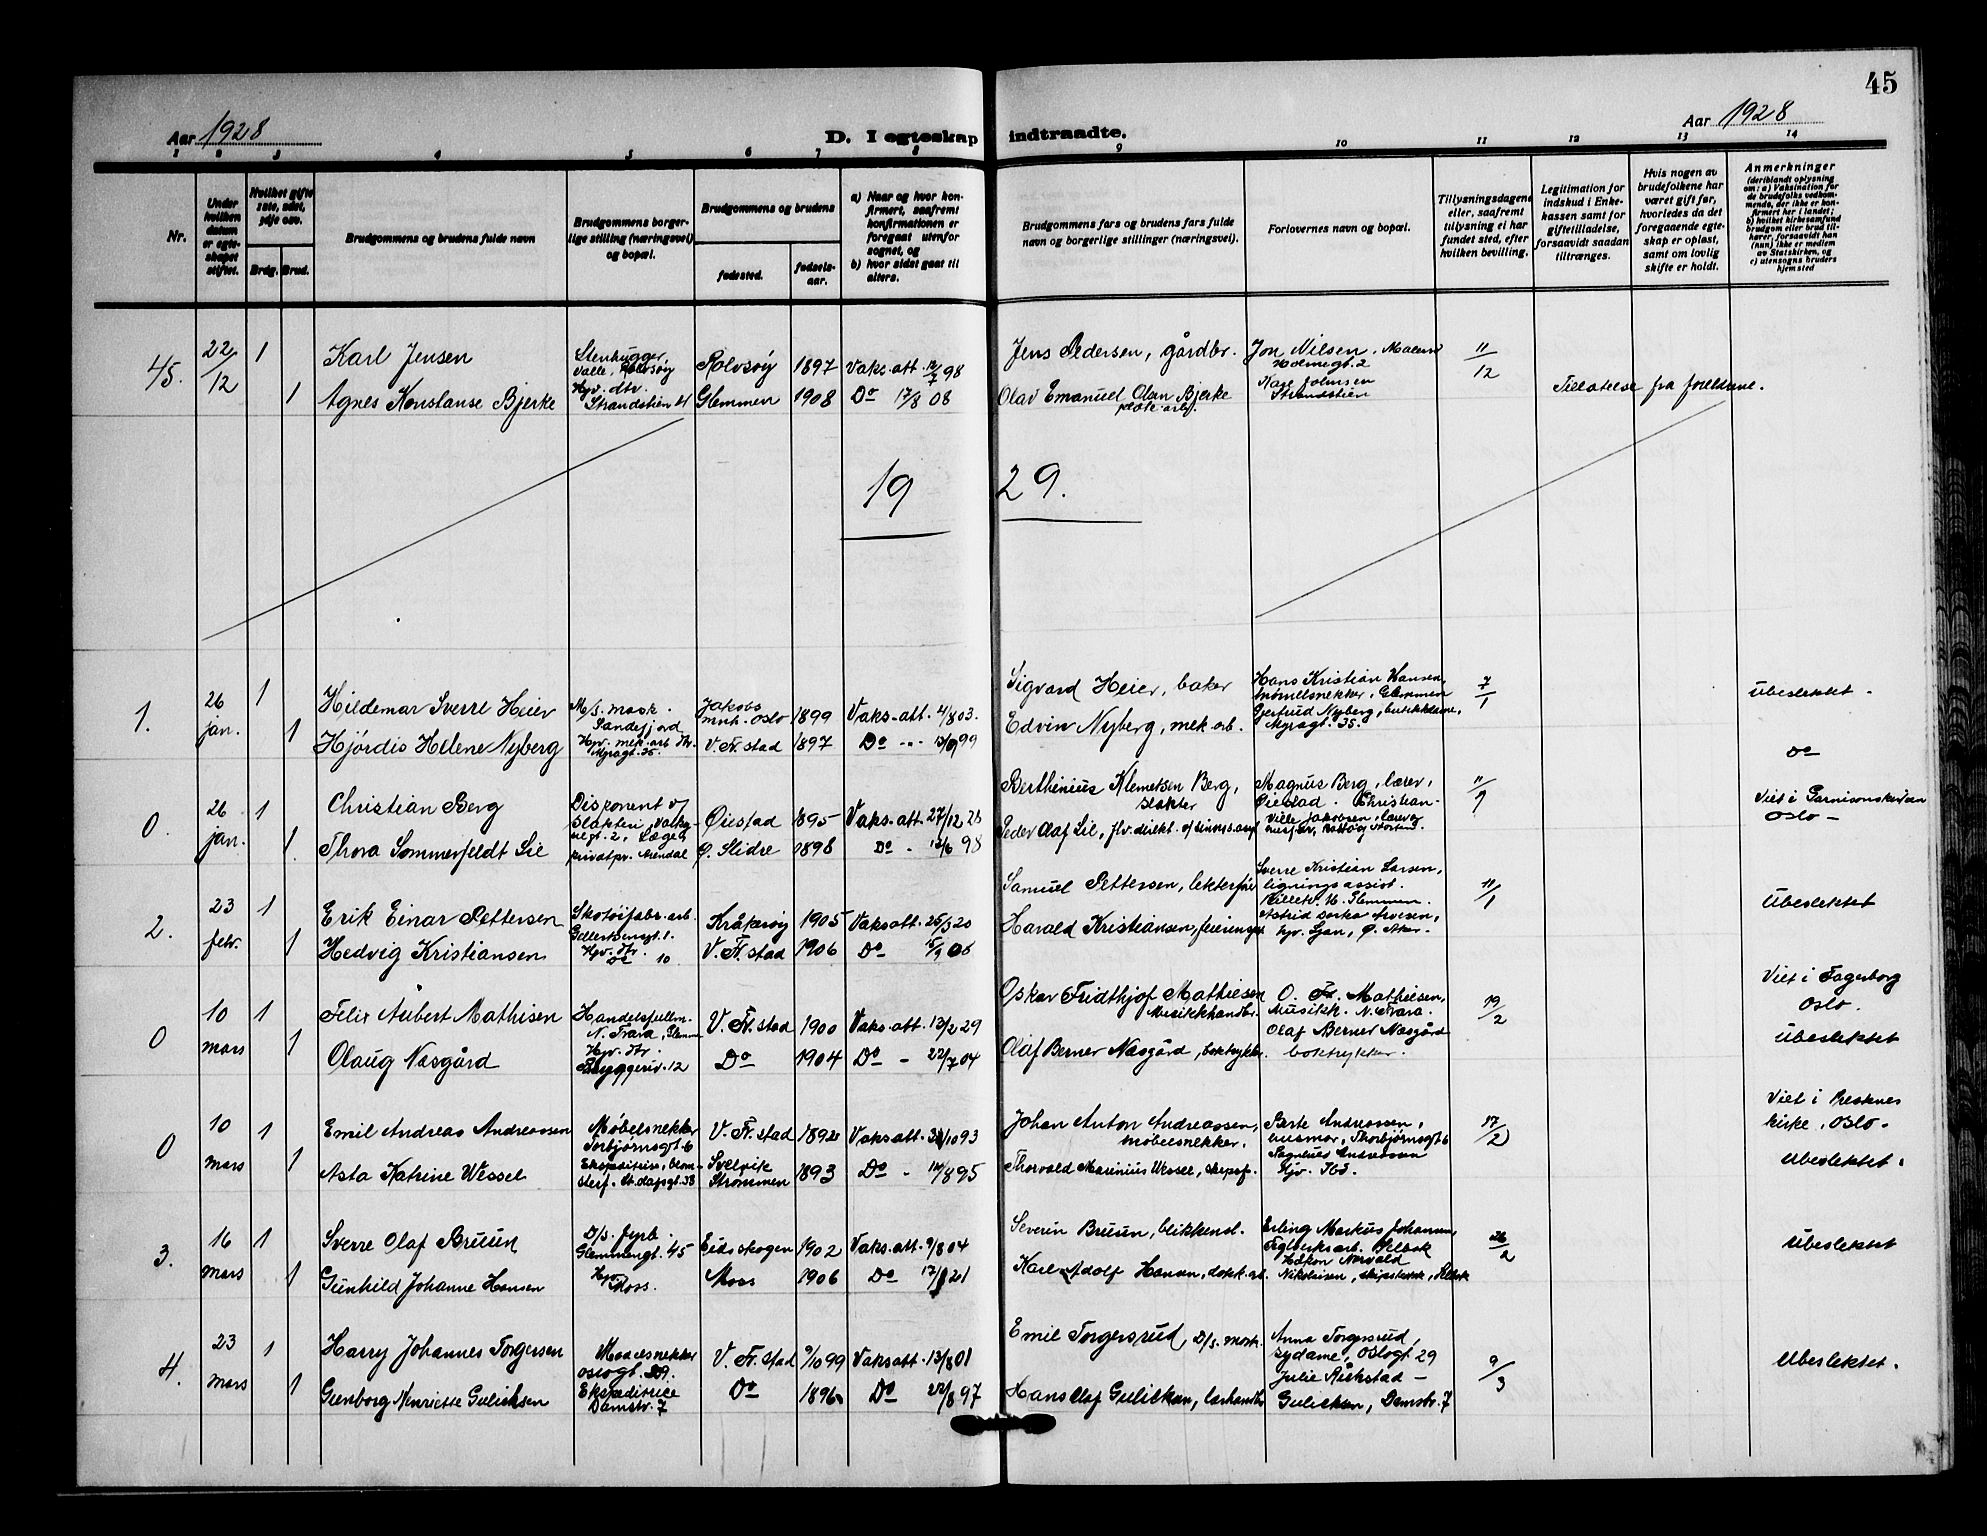 45
Aar 1928
D. I egteskap indtraadte.
Aar 1928
1 2 3 4 5 6 7 8 9 10 11 12 13 14
Nr.
Under hvilken datum er egteskapet stiftet.
Hvilket gifte 1ste, 2det, 3dje osv.
Brdg. Brud.
Brudgommens og brudens fulde navn
Brudgommens borgerlige stilling (næringsvei) og bopæl.
Brudgommens og brudens
fødested.
fødselsaar.
a) Naar og hvor konfirmert, saafremt konfirmationen er foregaat utenfor sognet, og
b) hvor sidst gaat til alters.
Brudgommens fars og brudens fars fulde navn og borgerlige stillinger (næringsvei).
Forlovernes navn og bopæl.
Tillysningsdagene eller, saafremt tillysning ei har fundet sted, efter hvilken bevilling.
Legitimation for indskud i Enkekassen samt for giftetilladelse, forsaavidt saadan tiltrænges.
Hvis nogen av brudefolkene har været gift før, hvorledes da det foregaaende egteskap er opløst, samt om lovlig skifte er holdt.
Anmerkninger
(deriblandt oplysning om: a) Vaksination for de brudefolks vedkommende, der ikke er konfirmert her i landet; b) hvilket kirkesamfund brudgom eller brud tilhører, forsaavidt han (hun) ikke er medlem av Statskirken, og c) utensogns bruders hjemsted
45. 22/12 1 Karl Jensen Stenhugger, Valle, Rolvsøy Rolvsøy 1897 Vaks. att. 12/7 98 Jens Pedersen, gårdbr. Jon Nilsen, Malerm Holmegt. 2 11/12
1 Agnes Konstanse Bjerke Hjv. dtr. Strandstien 21 Glemmen 1908 Do 17/8 08 Olav Emanuel Olsen Bjerke plate-arb. Kåre Johnsen Strandstien Tillatelse fra foreldrene.
19 29.
1. 26 jan. 1 Hildemar Sverre Heier M/s. mask. Sandefjord Jakobs mnh. Oslo 1899 Vaks. att. 4/8 03. Sigvard Heier, baker Hans Kristian Hansen, møbelsnekker, Glemmen 7/1 Ubeslektet.
1 Hjørdis Helene Nyberg Hjv. mek. arb. dtr. Nyragt. 35 V. Fr.stad 1897 Do 13/9 99 Edvin Nyberg, mek. arb. Gjertrud Nyberg, butikkdame, Nyragt. 35. Do
0. 26 jan. 1 Christian Berg Disponent v/ Slakteri, Øiestad 1895 Vaks. att. 27/12 28 Berthinius Klemetsen Berg, slakter Magnus Berg, lærer, Øiestad. 11/1 Viet i Garnisonskirken Oslo
1. Thora Sommerfeldt Lie privatpr. Arendal Ø. Slidre 1898 Do 13/6 98 Peder Olaf Lie,
2. 23 febr. 1 Erik Einar Pettersen Skotøifabr. arb. Kråkerøy 1905 Vaks att. 25/3 20 Samuel Pettersen, Sverre Kristian Larsen, ligningsassist. Glemmen. 11/1 Ubeslektet
1 Hedvig Kristiansen Hjv. dtr. 10 V. Fr.stad 1906 Do 15/9 06 Harald Kristiansen, hjv. Ljan, Ø. Aker.
0 10 mars 1 Felix Aubert Mathisen Handelsfullm. N. Trara, Glemm V. Fr. stad 1900 Vaks. att. 13/2 29 Oskar Fridthjof Mathiesen Musikkhandler O. Fr. Mathiesen, Musikk. N. Trara. 19/2 Viet i Fagerborg Oslo.
1 Olaug Næsgård Hjv. dtr. Bryggeriv. 12 Do 1904 Do 22/7 04 Olaf Berner Næsgård, boktrykker. Olaf Berner Næsgård boktrykker. Ubeslektet
0 10 mars 1 Emil Andreas Andreassen Møbelsnekker Torbjørnsgt. 6 V. Fr. stad 1892 Vaks att. 10 93 Johan Anton Andreassen, møbelsnekker. Berte Andreassen, husmor, Thorbjørnsgt 6 17/2 Viet i kirke, Oslo.
1 Asta Katrine Wessel St. dagsgt. 38 Svelvik Strømmen 1893 Do 14/8 95 Thorvald Marinius Wessel, Hjv. Ubeslektet.
3. 16 mars 1 Sverre Olaf Bruun D/s. fyrb. Glemmengt. 45 Eidsskogen 1902 Vaks. att. 9/8 04 Severin Bruun, blikkensl. Erling Markus Johansen, Teglverksarb. Selbak 26/2 Ubeslektet
1 Gunhild Johanne Hansen Hjv. Moss. Moss 1906 Do 17/8 21 Karl Adolf Hansen, dokk. arb. Håkon Norvald Nikolaisen, Selbak
4. 23 mars 1 Harry Johannes Torgersen Møbelsnekker Oslogt. 29. V. Fr. stad 9/10 99 Vaks att. 13/8 01 Emil Torgersrud, D/s. mask. Anna Torgersrud, sydame, Oslogt 29 9/3 Ubeslektet.
1 Gunborg Henriette Gulichsen Ekspeditrice Damstr. 7 Do 1896 Do 22/8 97 Hans Olaf Gulicksen, lærhandl. Julie Rickstad Gulicksen, Damstr. 7